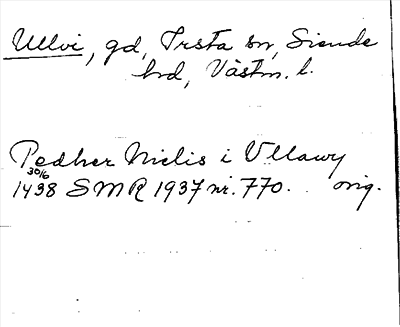 Ullvi, gd, Irsta sn, Siende
hd, Västm. l.
Pedher Niclis i Vllawy
30/6
1438 SMR 1937 nr. 770. orig.